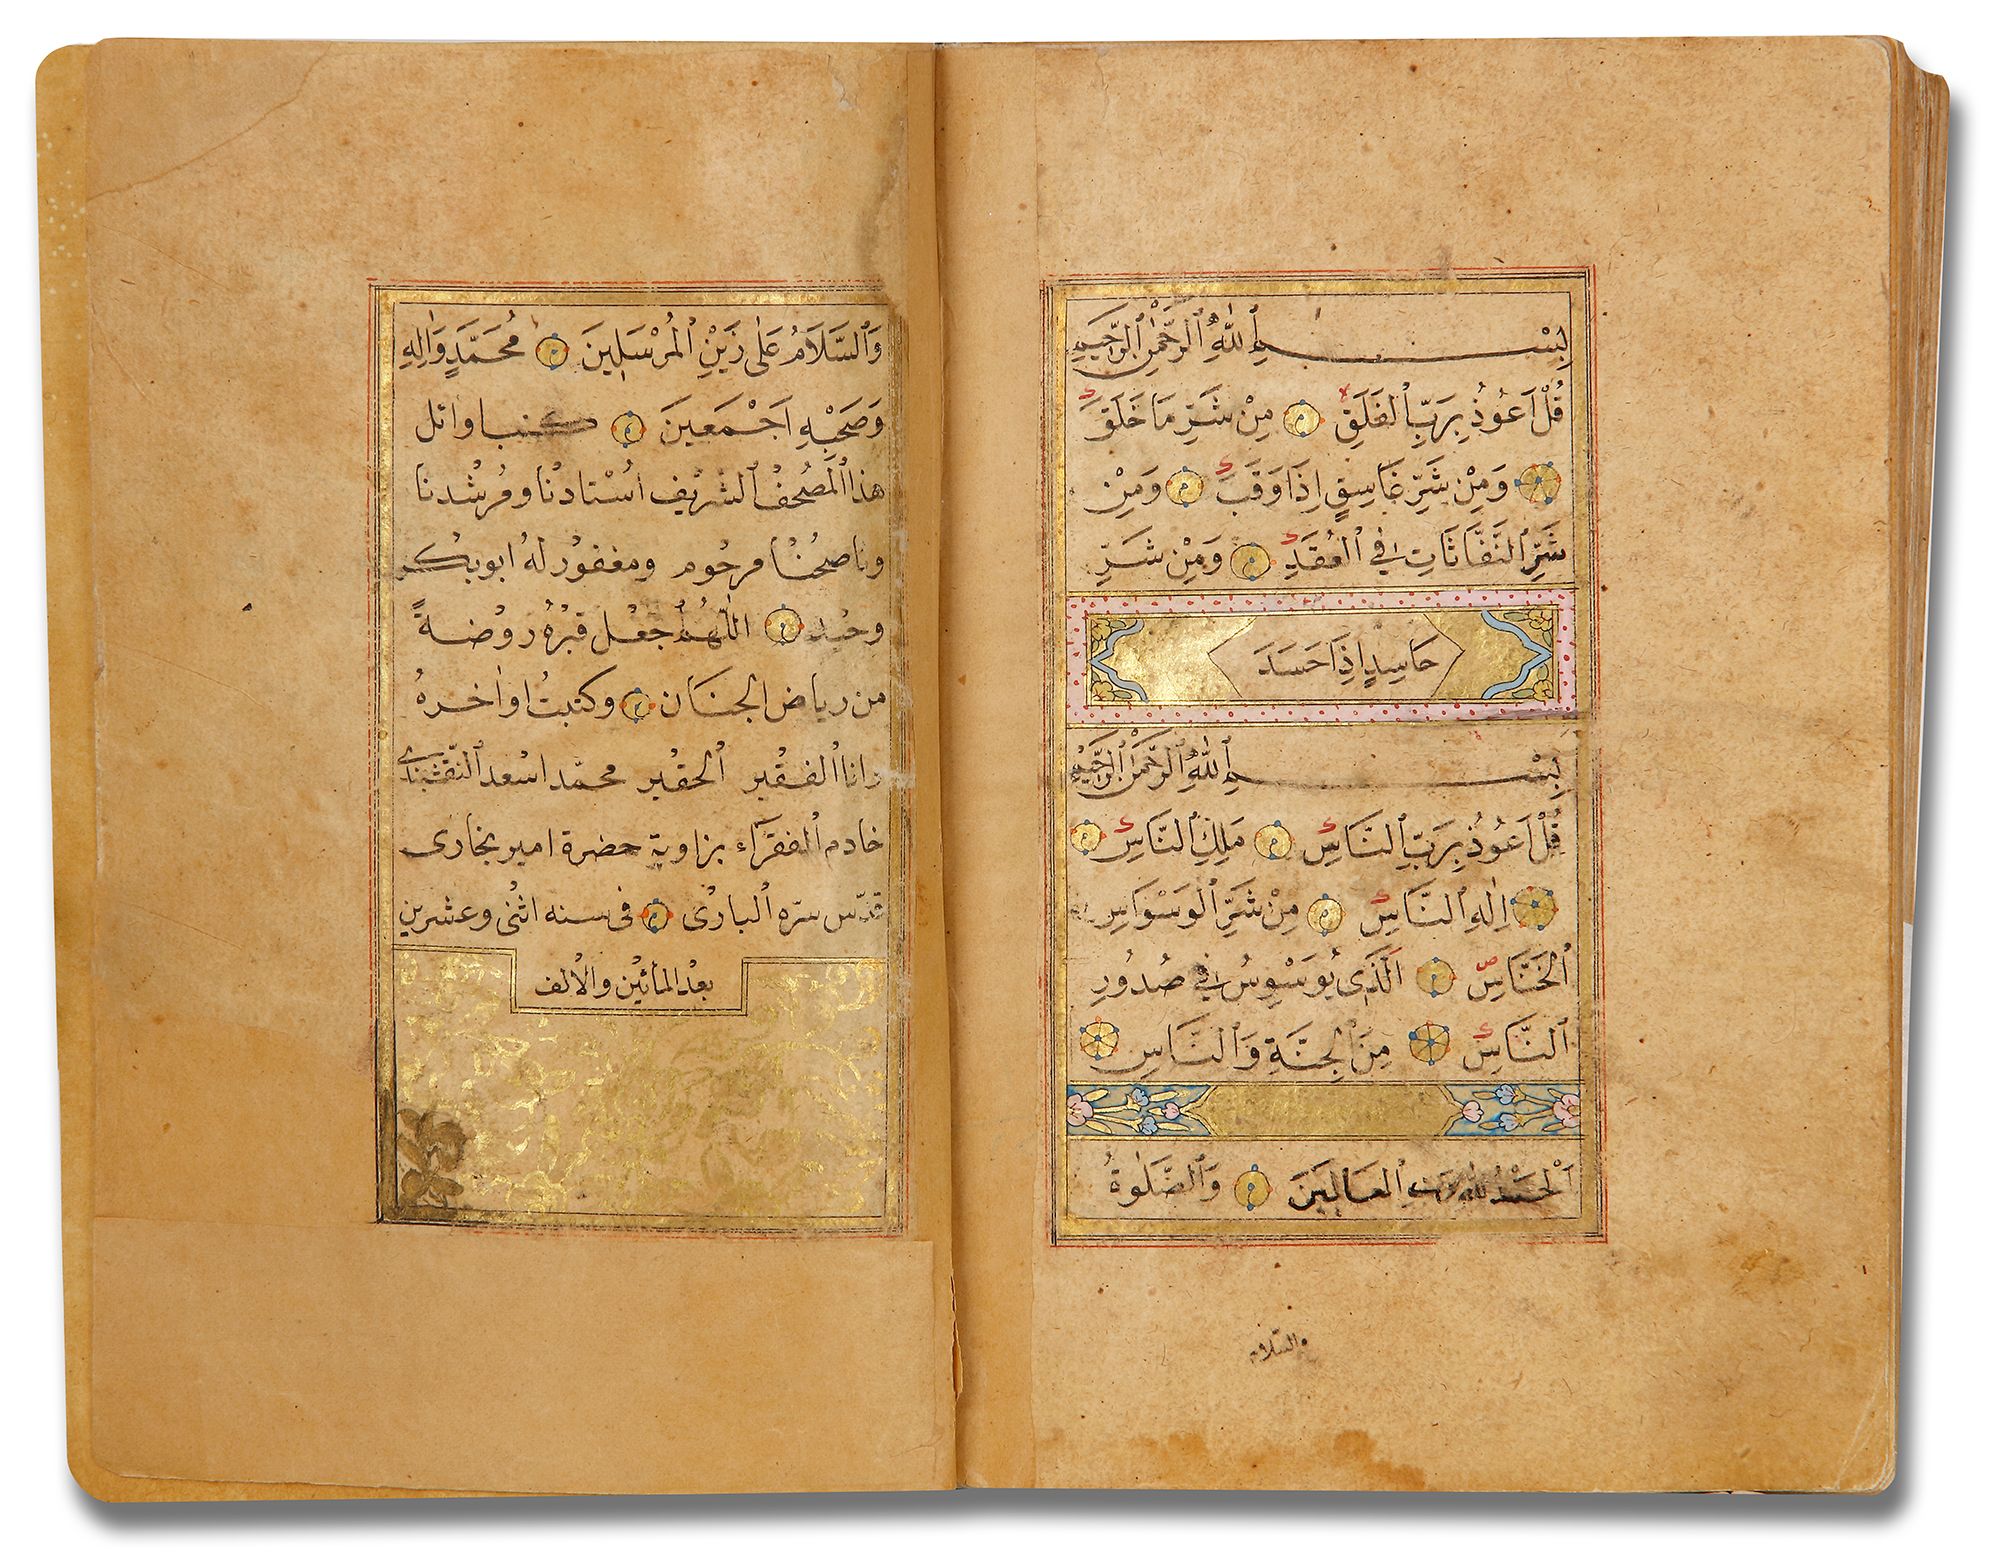 بِسْمِ ٱللّٰهِ ٱلرَّحْمٰنِ ٱلرَّحِيمِ
قُلْ اَعُوذُ بِرَبِّ ٱلْفَلَقِ مِنْ شَرِّ مَا خَلَقَ
وَمِنْ شَرِّ غَاسِقٍ اِذَا وَقَبَ وَمِنْ
شَرِّ ٱلنَّفَّاثَاتِ فِي ٱلْعُقَدِ وَمِنْ شَرِّ
حَاسِدٍ اِذَا حَسَدَ
بِسْمِ ٱللّٰهِ ٱلرَّحْمٰنِ ٱلرَّحِيمِ
قُلْ اَعُوذُ بِرَبِّ ٱلنَّاسِ مَلِكِ ٱلنَّاسِ
اِلٰهِ ٱلنَّاسِ مِنْ شَرِّ ٱلْوَسْوَاسِ
ٱلْخَنَّاسِ ٱلَّذِي يُوَسْوِسُ فِي صُدُورِ
ٱلنَّاسِ مِنَ ٱلْجِنَّةِ وَٱلنَّاسِ
ٱلْحَمْدُ لِلّٰهِ رَبِّ ٱلْعَالَمِينَ وَٱلصَّلٰوةُ
والسّلام
وَٱلسَّلَامُ عَلٰى زَيْنِ ٱلْمُرْسَلِينَ مُحَمَّدٍ وَاٰلِهِ
وَصَحْبِهِ اَجْمَعِينَ كتب اوائل
هذا ٱلْمُصْحَفْ ٱلشّرِيْف اُسْتادنْا ومُرشْدنا
وناصحُنْا مرحُوم ومغفورْ لهُ ابو بكر
وحيد اللّٰهم اجْعْل قبْرُهُ روْضةً
من رياض الجنَان وكتبتُ اواٰخرهُ
وانا ٱلفقْير ٱلحقْير محمّد اسعد ٱلنّقشبندى
خادم ٱلفقرَاء بزاوية حضرة امير بخارى
قدّس سرّه ٱلبارى فى سنه اثنْى وعشرين
بعدْ المأتيْن والْالف